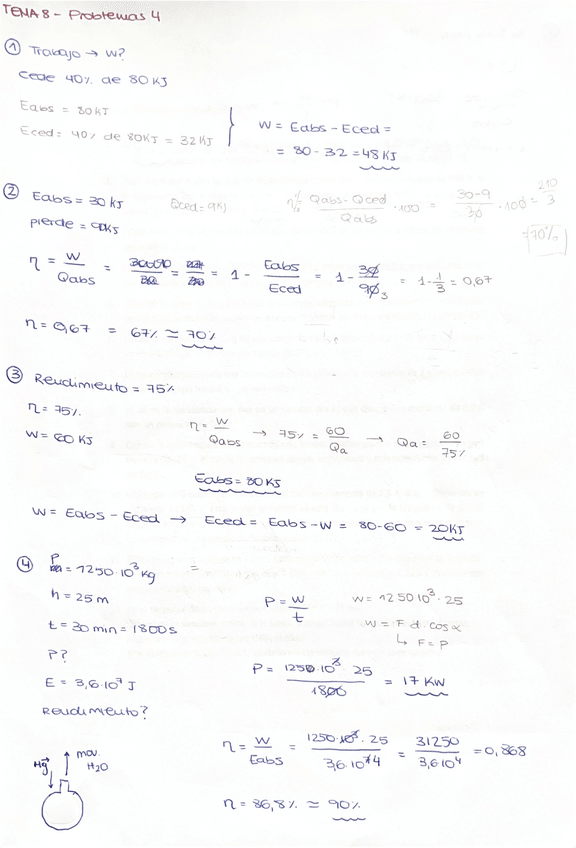 TEMA 8 - Problemas 4
① Trabajo → W?
Cede 40% de 80KJ
Eabs = 80KJ
Eced = 40% de 80KJ = 32KJ
W = Eabs - Eced =
= 80 - 32 = 48KJ
② Eabs = 30 KJ
pierde = 9KJ
Eced = 9KJ
η% = Qabs - Qced / Qabs · 100 = 30-9 / 30 · 100 = 210 / 3
= 70%
η = W / Qabs = 1 - Eabs / Eced = 1 - 30 / 90 3 = 1 - 1/3 = 0,67
η = 0,67 = 67% ≃ 70%
③ Rendimiento = 75%
η = 75%
W = 60 KJ
η = W / Qabs → 75% = 60 / Qa → Qa = 60 / 75%
Eabs = 80KJ
W = Eabs - Eced → Eced = Eabs - W = 80-60 = 20KJ
④ P = 1250·10³ Kg =
h = 25 m
t = 30 min = 1800 s
P?
E = 3,6·10⁷ J
Rendimiento?
P = W / t
W = 1250 10³ · 25
W = F · d · cos α
↳ F = P
P = 1250·10³ · 25 / 1800 = 17 KW
η = W / Eabs = 1250·10³ · 25 / 3,6·10⁷ 4 = 31250 / 3,6 10⁴ = 0,868
η = 86,8% ≃ 90%
Hg
mov.
H2O